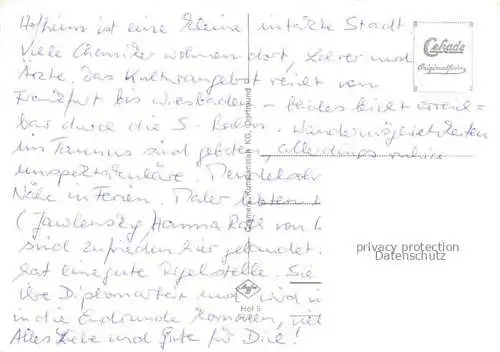 Hofheim ist eine kleine intakte Stadt.
Viele Chemiker wohnen dort, Lehrer und
Ärzte. Das Kulturangebot reicht von
Frankfurt bis Wiesbaden - beides leicht erreich=
bar durch die S-Bahn. Wandermöglichkeiten
im Taunus sind geboten, allerdings
unspektakuläre.
Nähe in Ferien. Maler lebten
(Jawlensky Hanna
sind zufrieden hier gelandet.
hat eine gute Stelle. Sie
ihre Diplomarbeit und wird
in die Endrunde kommen,
Alles Liebe und Gute für Dich!
Cekade
Originalfoto
Cramers Kunstanstalt KG, Dortmund
Hof 5
privacy protection
Datenschutz